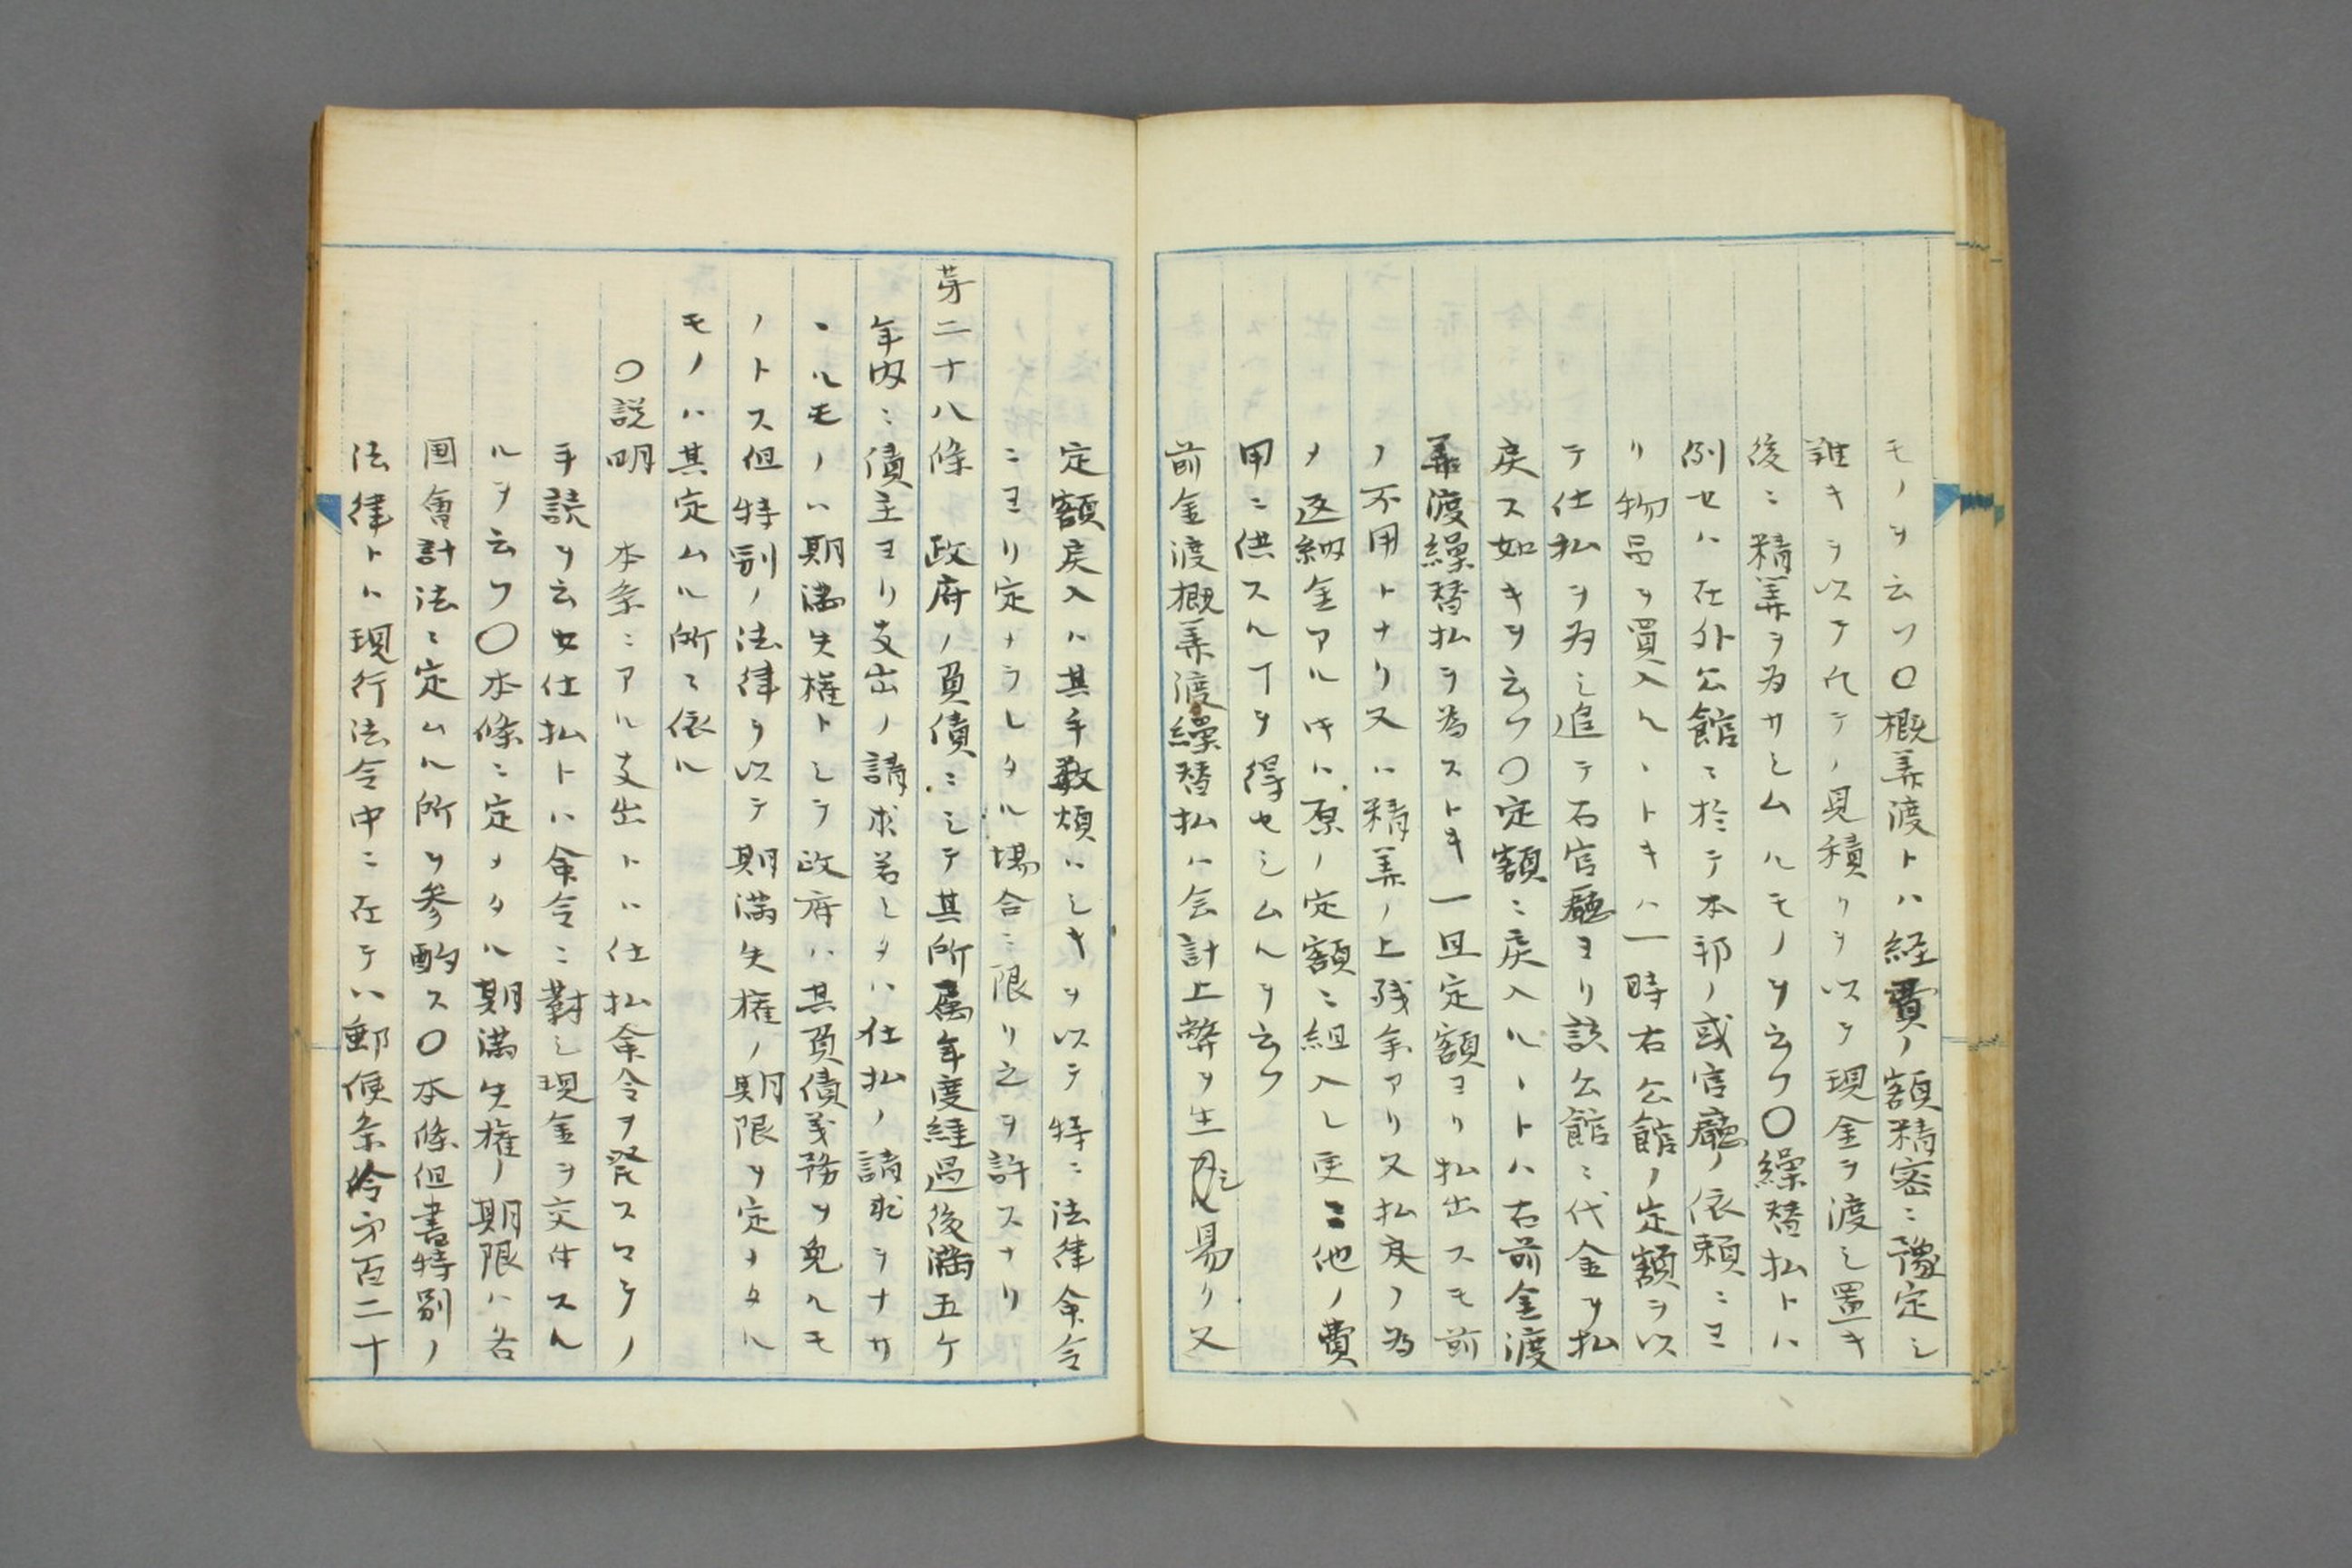 モノヲ云フ〇概算渡トハ経費ノ額精密ニ豫定シ
難キヲ以テ凡テノ見積リヲ以テ現金ヲ渡シ置キ
後ニ精算ヲ為サシムルモノヲ云フ〇繰替払トハ
例セハ在外公館ニ於テ本邦ノ或官廳ノ依頼ニヨ
リ物品ヲ買入ルヽトキハ一時右公館ノ定額ヲ以
テ仕払ヲ為シ追テ右官廳ヨリ該公館ニ代金ヲ払
戻ス如キヲ云フ〇定額ニ戻入ルヽトハ右前金渡
算渡繰替払ヲ為ストキ一旦定額ヨリ払出スモ前
ノ不用トナリ又ハ精算ノ上残余アリ又払戻ノ為
メ返納金アル时ハ原ノ定額ニ組入レ更ニ他ノ費
用ニ供スルヿヲ得セシムルヲ云フ
前金渡概算渡繰替払ハ会計上弊ヲ生シ易リ又
定額戻入ハ其手数煩ハシキヲ以テ特ニ法律命令
ニヨリ定メラレタル場合ニ限リ之ヲ許スナリ
苐二十八條　政府ノ負債ニシテ其所属年度経過後満五ケ
年内ニ債主ヨリ支出ノ請求若シクハ仕払ノ請求ヲナサ
ヽルモノハ期満失権トシテ政府ハ其負債義務ヲ免ルモ
ノトス但特別ノ法律ヲ以テ期満失権ノ期限ヲ定メタル
モノハ其定ムル所ニ依ル
〇説明　本条ニアル支出トハ仕払命令ヲ発スマテノ
手続ヲ云ヒ仕払トハ命令ニ對シ現金ヲ交付スル
ルヲ云フ〇本條ニ定メタル期満失権ノ期限ハ各
国會計法ニ定ムル所ヲ参酌ス〇本條但書特別ノ
法律トハ現行法令中ニ在テハ郵便条令第百二十